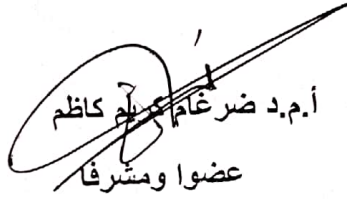 أ.م.د ضرغام كريم كاظم
عضوا ومشرفا